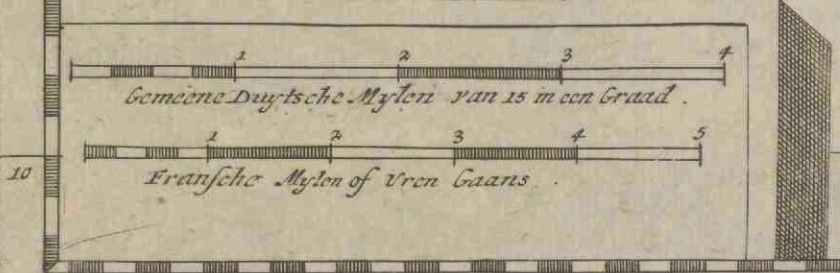 1 2 3 4
Gemeene Duytsche Mylen van 15 in een Graad.
1 2 3 4 5
10
Fransche Mylen of Vren Gaans.